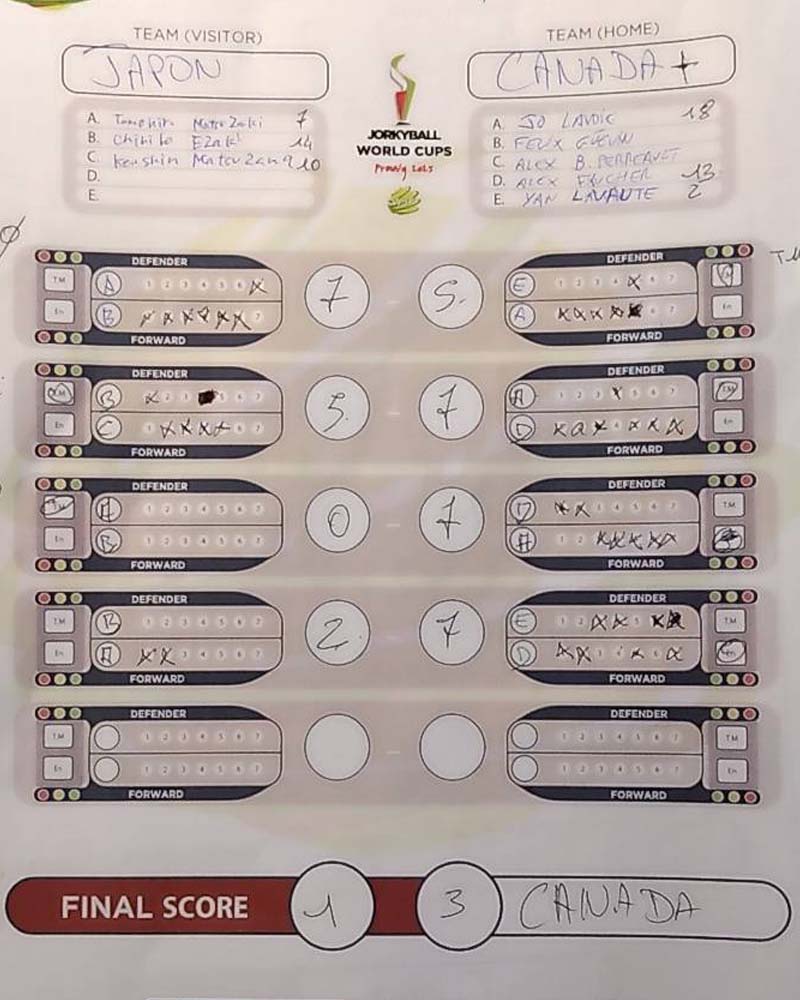 TEAM (VISITOR)
TEAM (HOME)
JAPON
CANADA +
A. 7
B. 14
C. 10
D.
E.
JORKYBALL
WORLD CUPS
A. JO LAVOIE 18
B. FELIX
C. ALEX B. PERREAULT
D. ALEX FAUCHER 13
E. YAN 2
DEFENDER
TM A 1 2 3 4 5 6 7
En B 7
FORWARD
7 - 5
DEFENDER
E 1 2 3 4 5 6 7
A 6 7 En
FORWARD
DEFENDER
TM B 2 3 5 6 7
En C 1 6 7
FORWARD
5 - 7
DEFENDER
A 1 2 3 5 6 7 TM
D 4 En
FORWARD
DEFENDER
TM A 1 2 3 4 5 6 7
En B 1 2 3 4 5 6 7
FORWARD
0 - 7
DEFENDER
D 3 4 5 6 7 TM
A 1 2
FORWARD
DEFENDER
TM B 1 2 3 4 5 6 7
En A 3 4 5 6 7
FORWARD
2 - 7
DEFENDER
E 1 2 5 TM
D 3 6 En
FORWARD
DEFENDER
TM 1 2 3 4 5 6 7
En 1 2 3 4 5 6 7
FORWARD
-
DEFENDER
1 2 3 4 5 6 7 TM
1 2 3 4 5 6 7 En
FORWARD
FINAL SCORE 1 3 CANADA